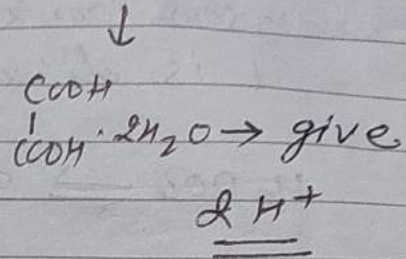 ↓
COOH
|
COOH · 2H₂O → give
2 H⁺